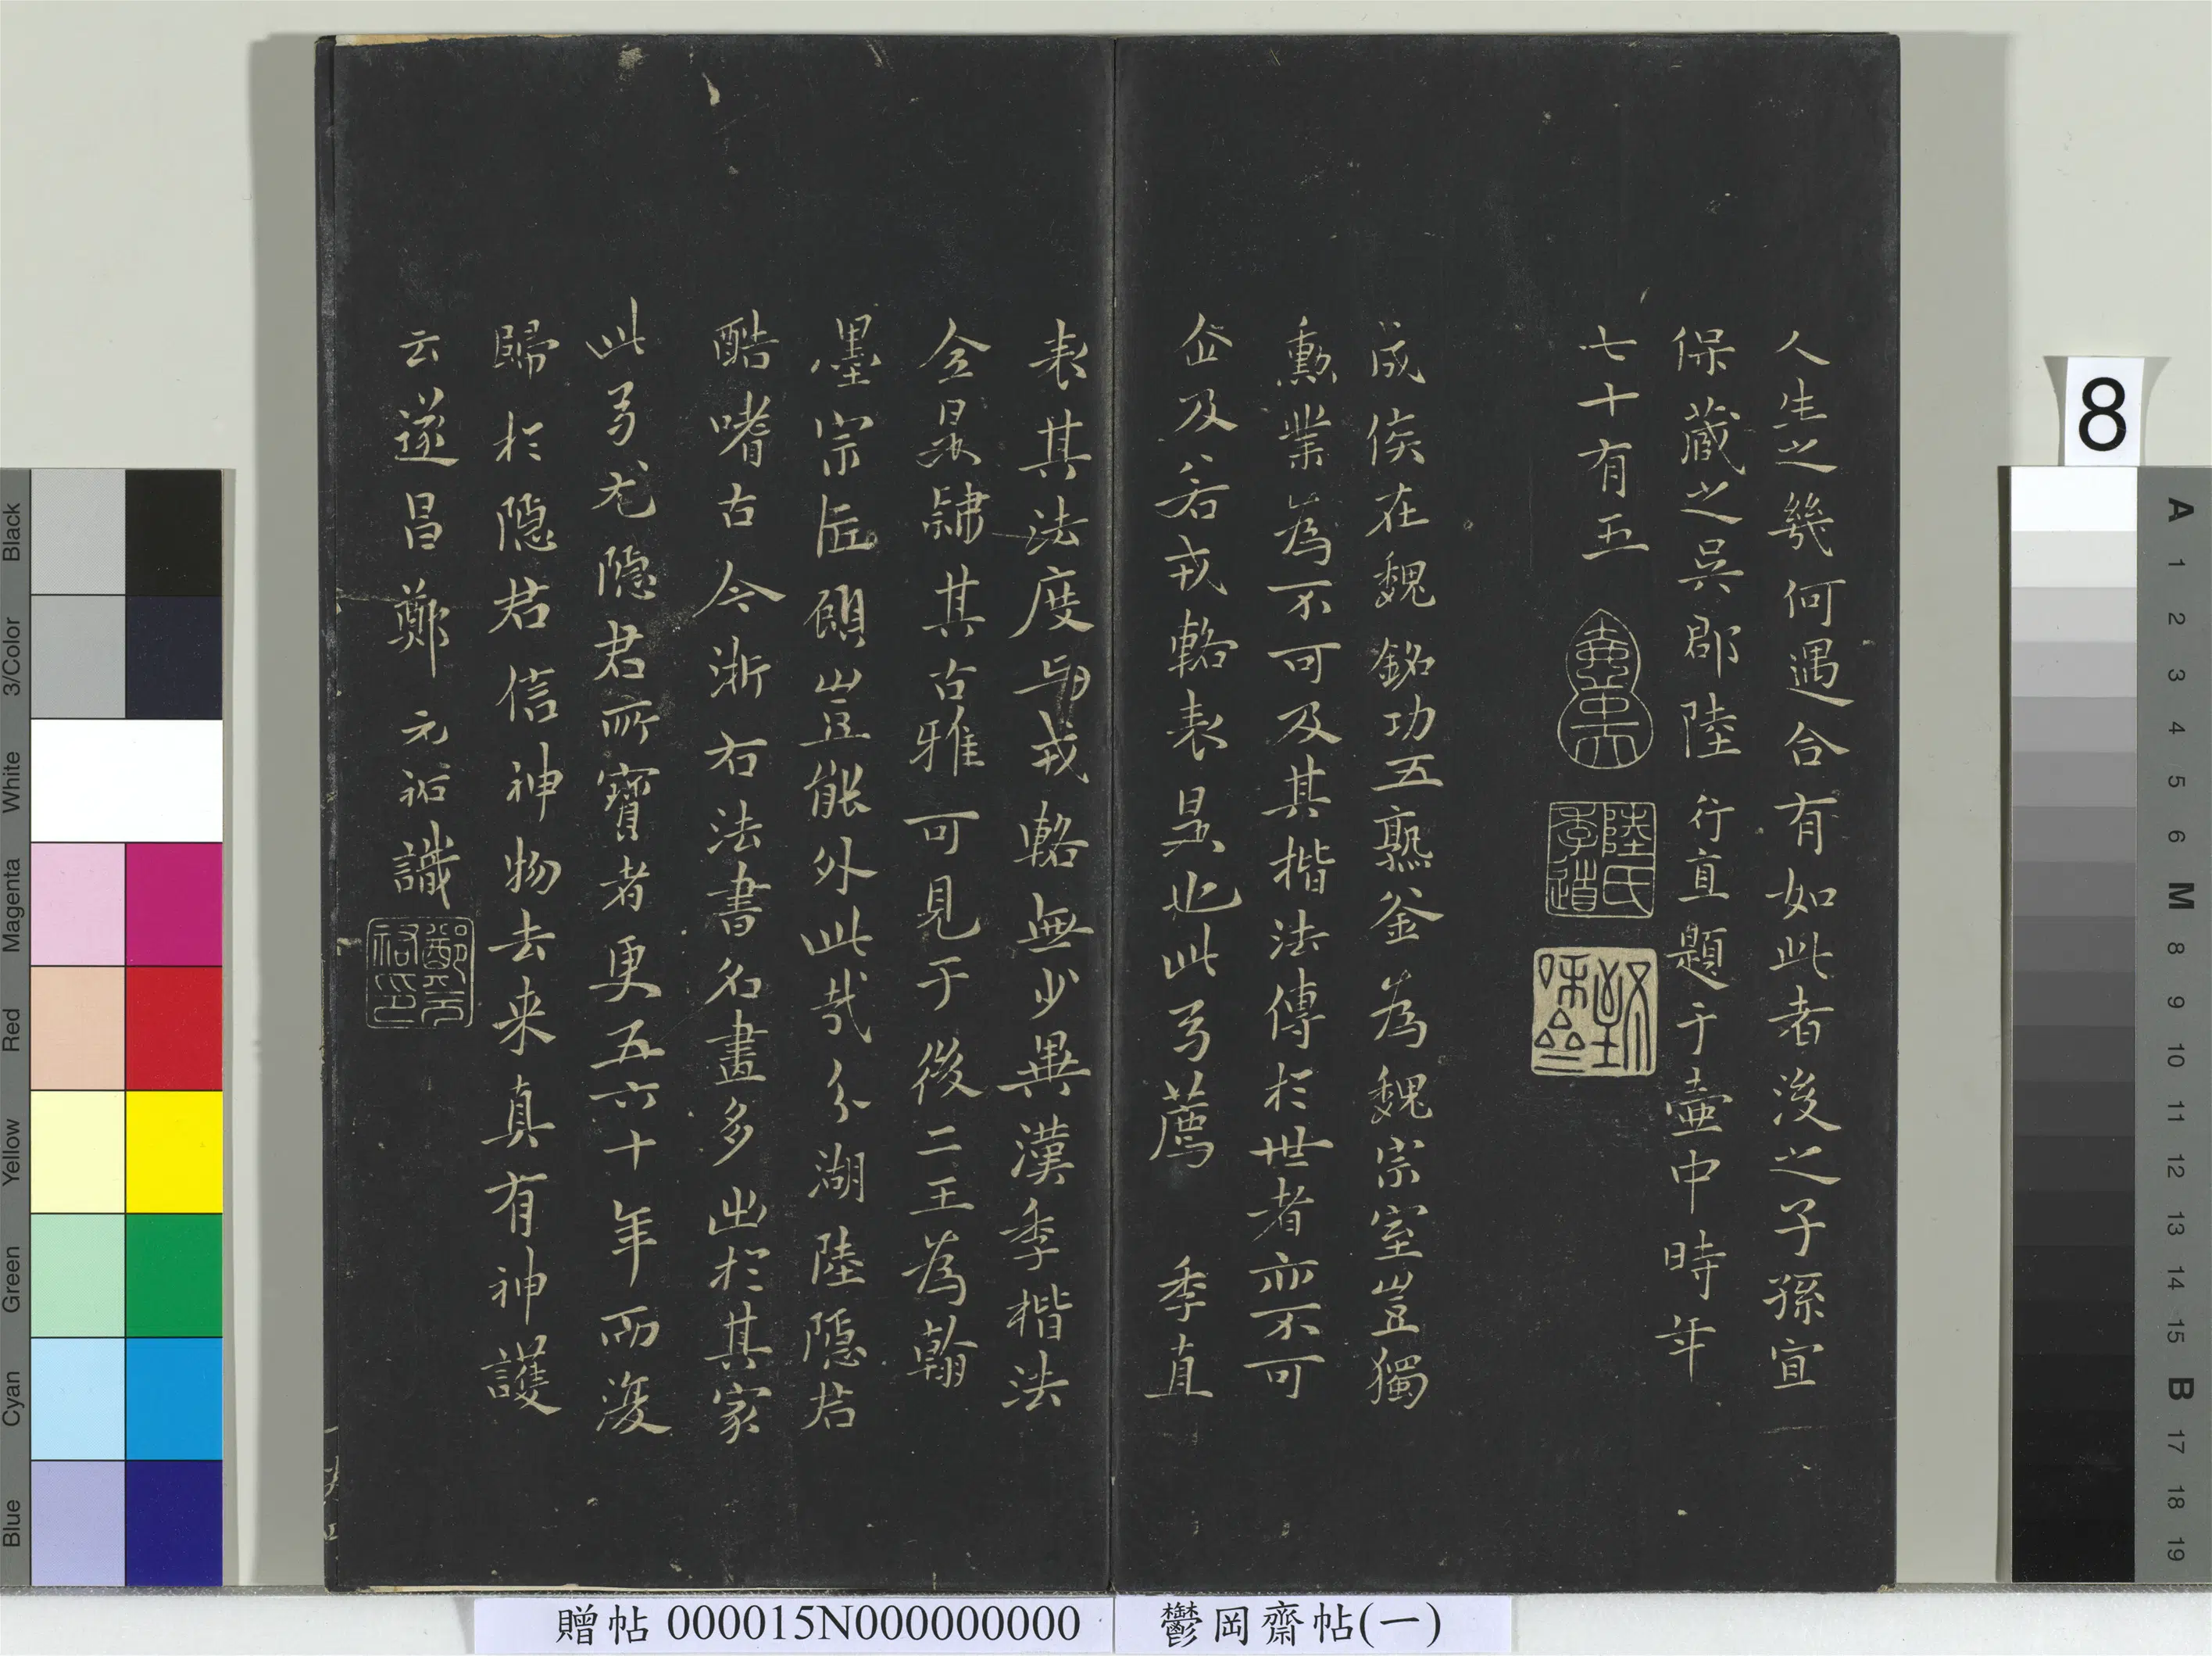 人生之幾何遇合有如此者後之子孫宜
保藏之吳郡陸行直題于壺中時年
七十有五
陸氏季道
成侯在魏銘功五熟釜為魏宗室豈獨
勳業為不可及其楷法傳於世者亦不可
企及若戎輅表是也此与薦季直
表其法度与戎輅無少異漢季楷法
全是隸其古雅可見于後二王為翰
墨宗匠顧豈能外此哉分湖陸隱君
酷嗜古今浙右法書名畫多出於其家
此与尤隱君所寶者更五六十年而復
歸於隱君信神物去来真有神護
云遂昌鄭元祐識
鄭元祐印
8
贈帖 000015N000000000
鬱岡齋帖(一)
Black
3/Color
White
Magenta
Red
Yellow
Green
Cyan
Blue
A
1
2
3
4
5
6
M
8
9
10
11
12
13
14
15
B
17
18
19